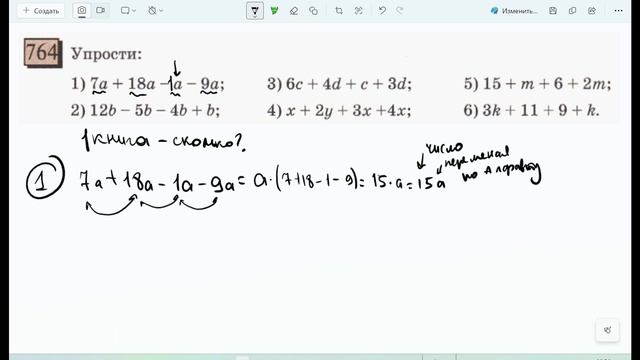 Создать
Изменить...
764 Упрости:
1) 7a + 18a - 1a - 9a; 3) 6c + 4d + c + 3d; 5) 15 + m + 6 + 2m;
2) 12b - 5b - 4b + b; 4) x + 2y + 3x + 4x; 6) 3k + 11 + 9 + k.
1 книга - сколько?
число
переменная
по алфавиту
1 7a + 18a - 1a - 9a = a · (7 + 18 - 1 - 9) = 15 · a = 15a